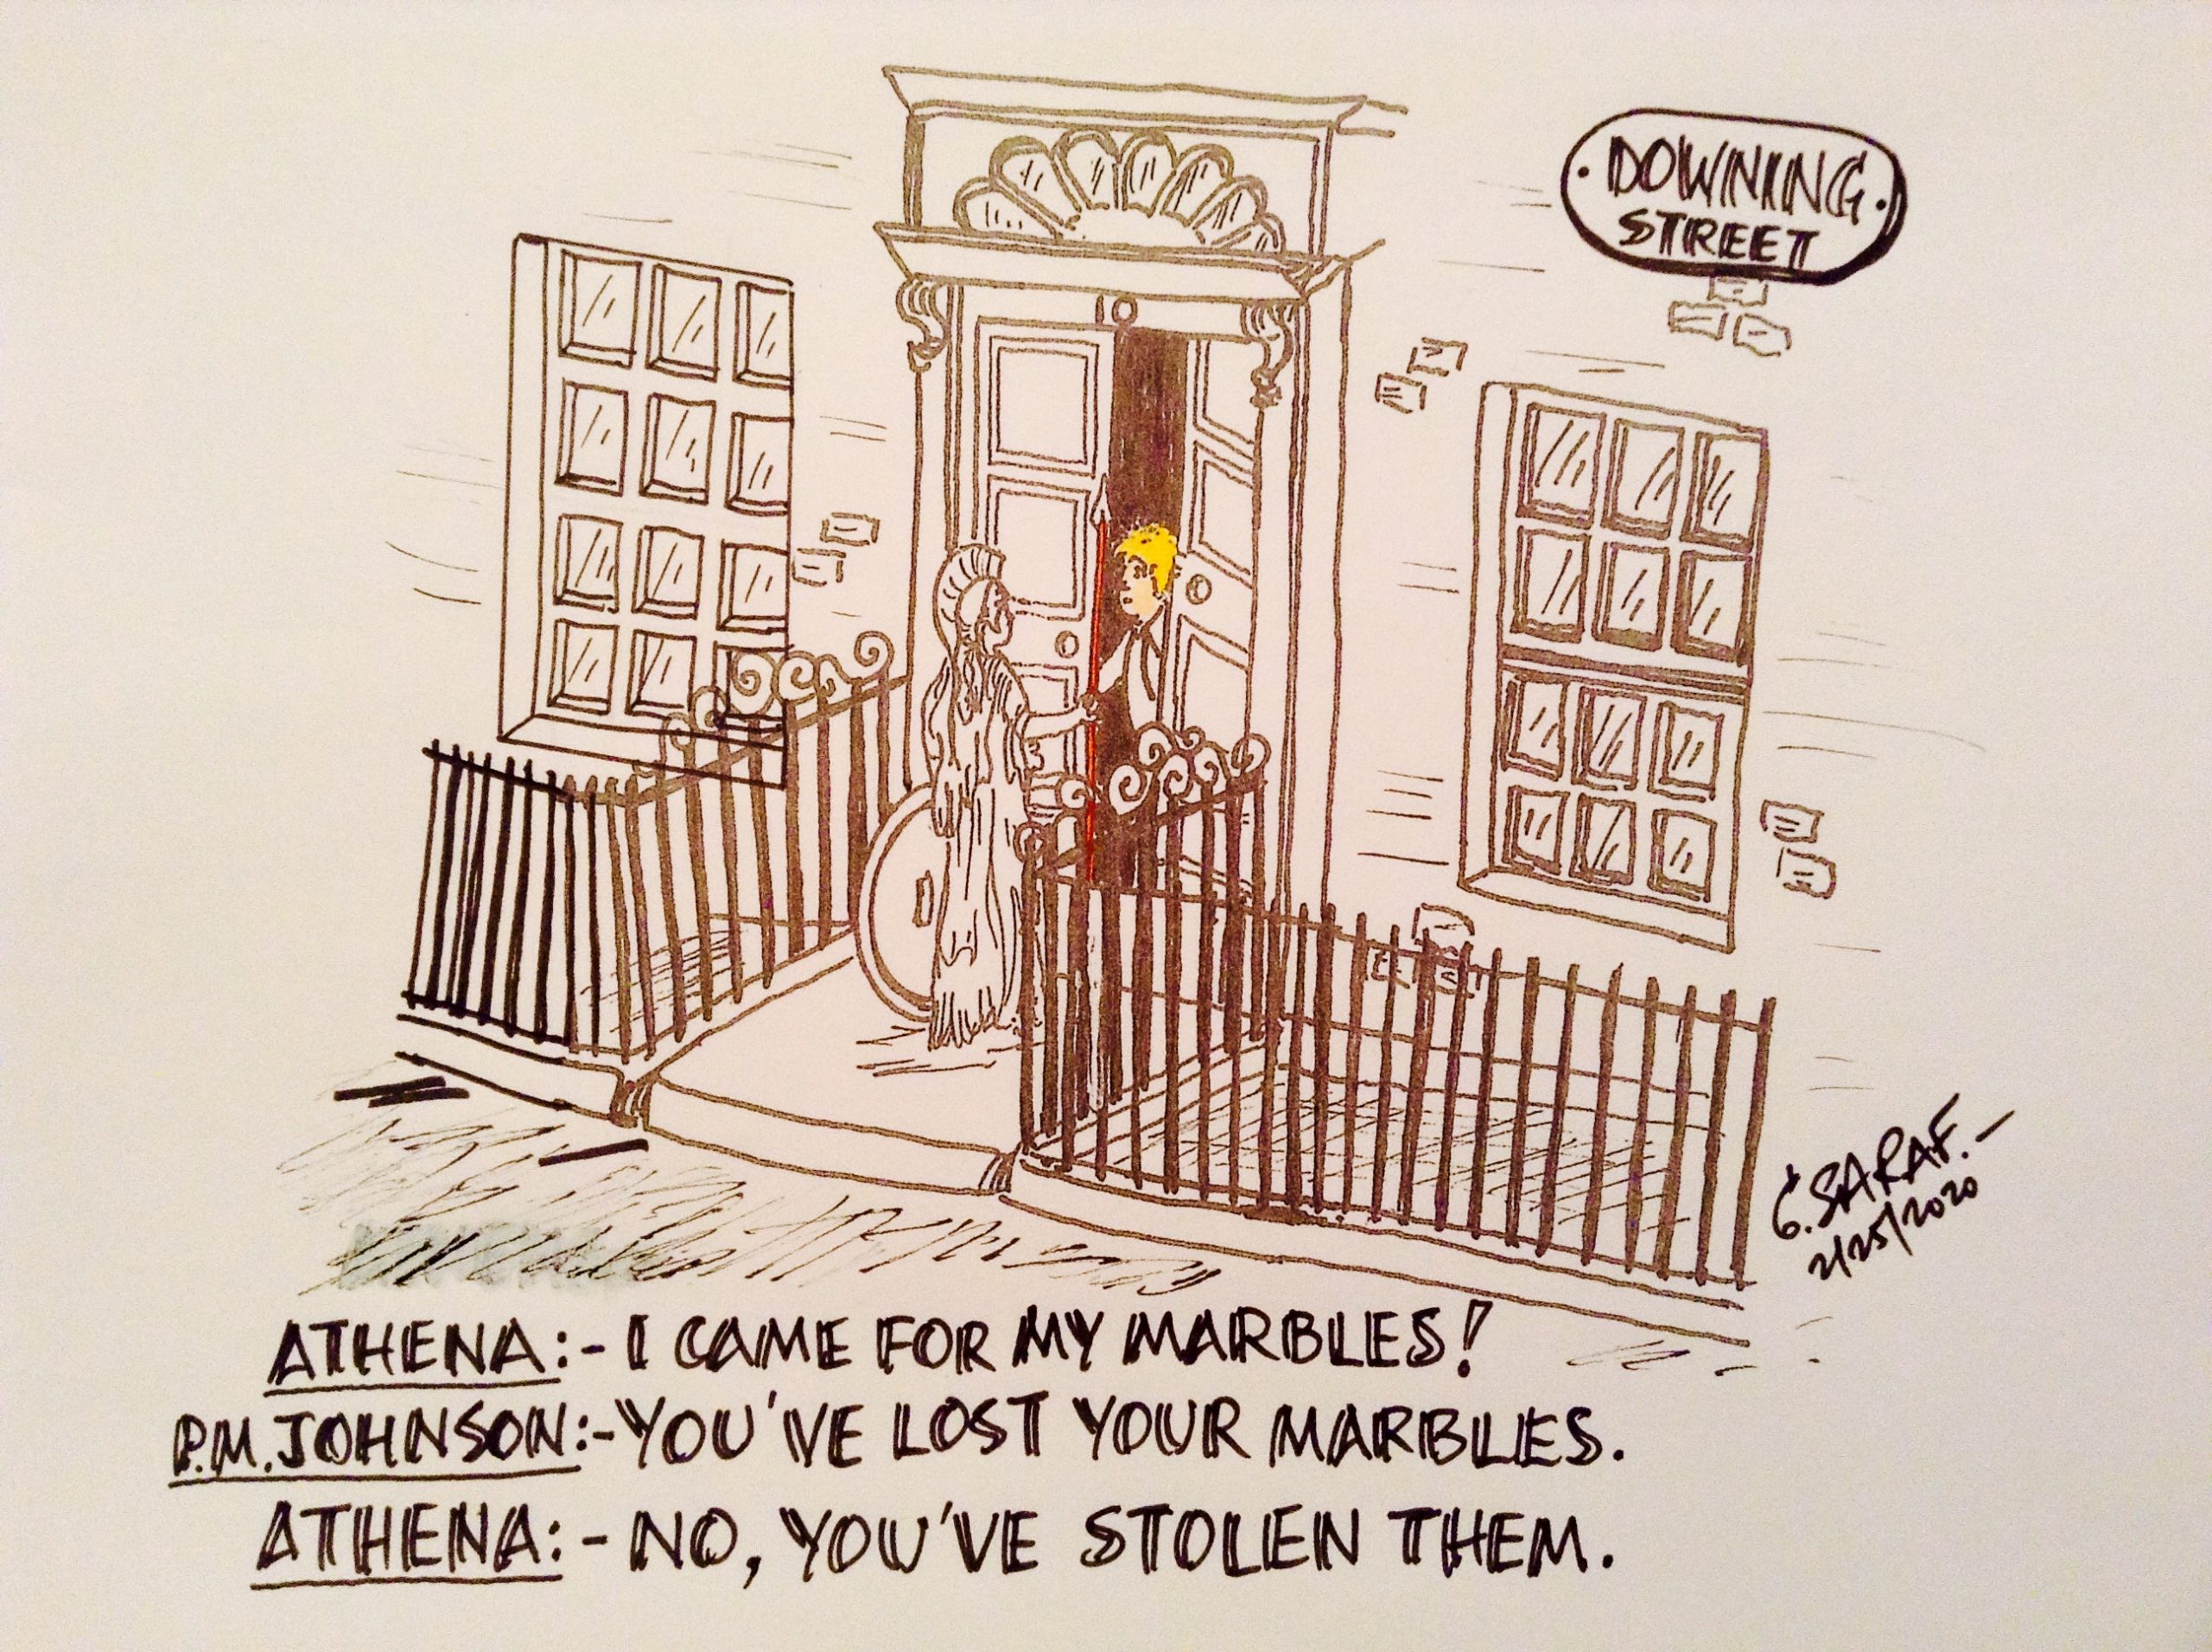 DOWNING
STREET
G. SARAF.-
2/25/2020
ATHENA:- I CAME FOR MY MARBLES!
P.M. JOHNSON:- YOU'VE LOST YOUR MARBLES.
ATHENA:- NO, YOU'VE STOLEN THEM.